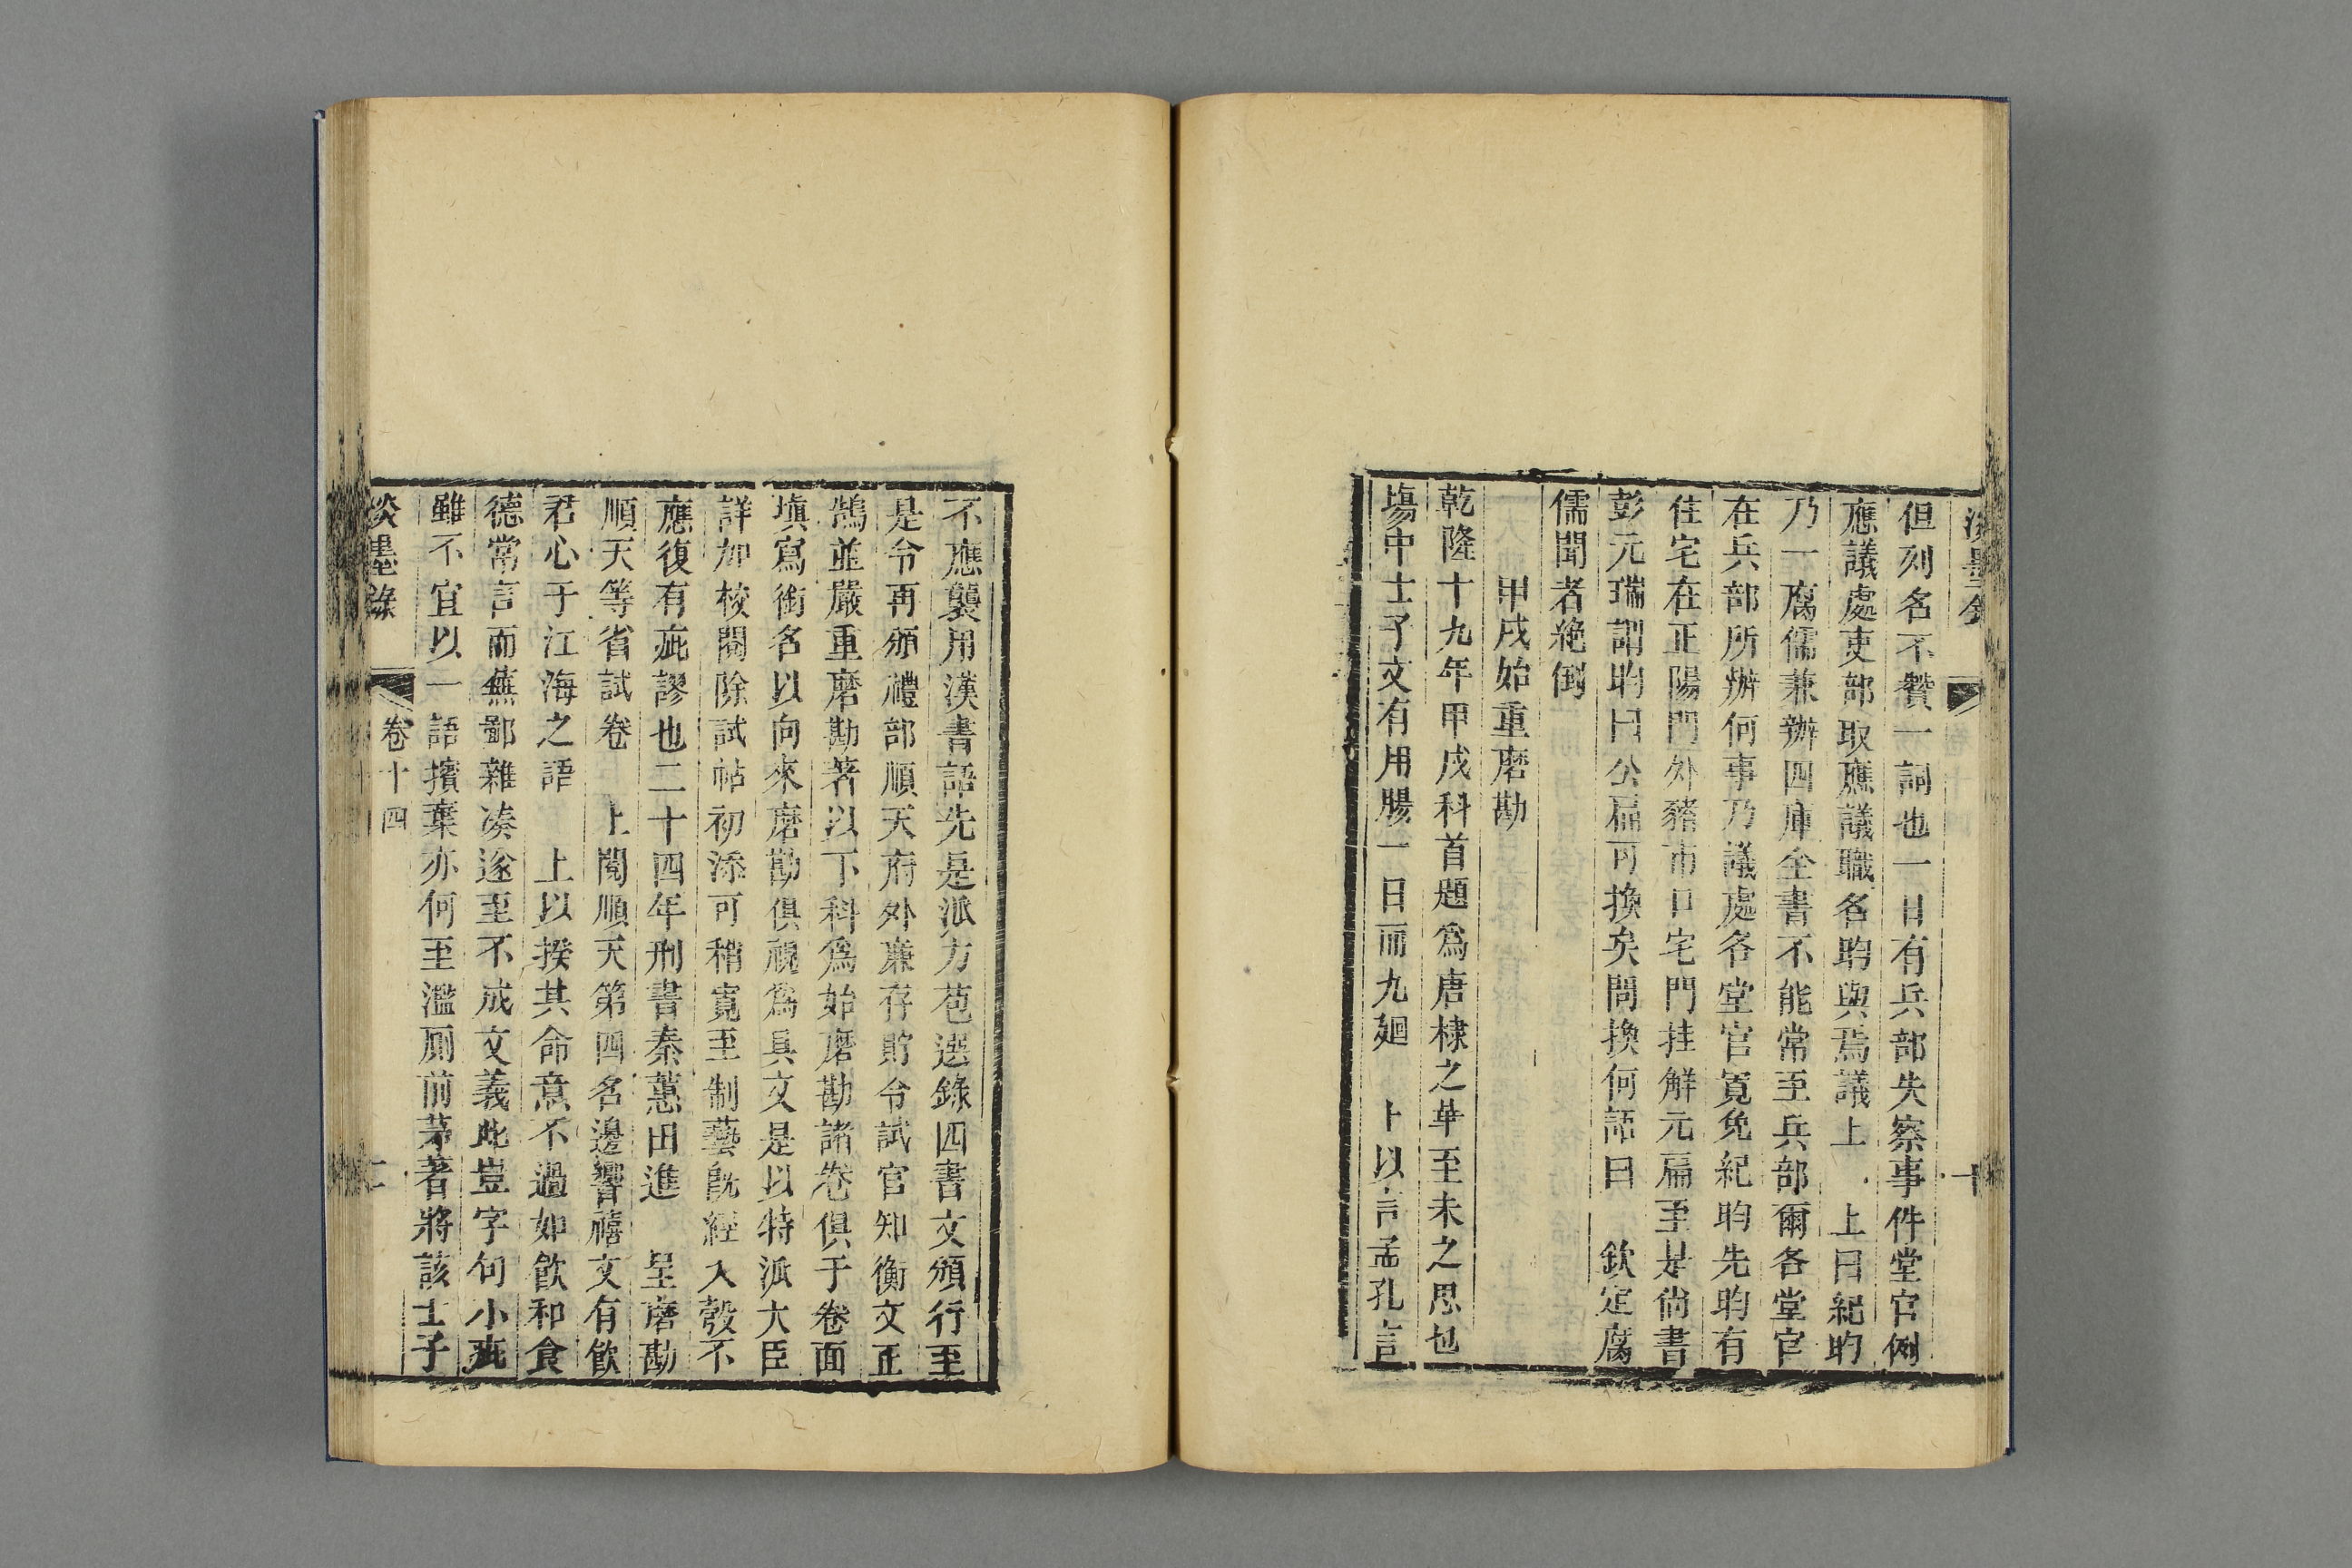 淡墨錄
十
但刻名不贊一詞也一日有兵部失察事件堂官例
應議處吏部取應議職名昀與焉議上 上曰紀昀
乃一腐儒兼辦四庫全書不能常至兵部爾各堂官
在兵部所辦何事乃議處各堂官寬免紀昀先昀有
住宅在正陽門外豬市口宅門挂解元扁至是尙書
彭元瑞謂昀曰公扁可換矣問換何語曰 欽定腐
儒聞者絶倒
甲戌始重磨勘
乾隆十九年甲戌科首題爲唐棣之華至未之思也
塲中士子文有用腸一日而九廻 上以言孟孔言
不應襲用漢書語先是派方苞選錄四書文頒行至
是令再頒禮部順天府外廉存貯令試官知衡文正
鵠並嚴重磨勘著以下科爲始磨勘諸卷俱于卷面
塡寫銜名以向來磨勘俱視爲具文是以特派大臣
詳加校閱除試帖初添可稍寬至制藝旣經入彀不
應復有疵謬也二十四年刑書秦蕙田進 呈磨勘
順天等省試卷 上閱順天第四名邊響禧文有飮
君心于江海之語 上以揆其命意不過如飮和食
德常言而蕪鄙雜湊遂至不成文義此豈字句小疵
雖不宜以一語擯棄亦何至濫厠前茅著將該士子
淡墨錄 卷十四